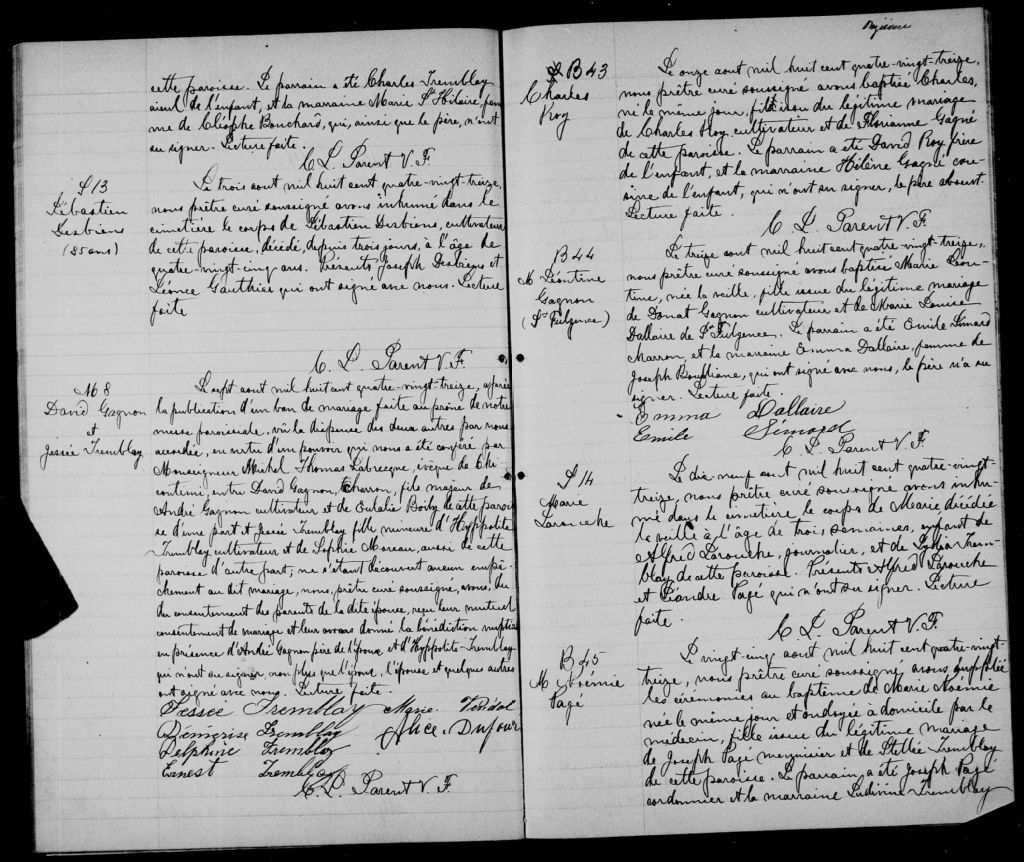 cette paroisse. Le parrain a été Charles Tremblay
aieul de l'enfant, et la marraine Marie St Hilaire, fem-
me de Cléophe Bouchard, qui, ainsi que le père, n'ont
su signer. Lecture faite.
C L. Parent V. F.
S 13
Sébastien
Desbiens
(85 ans)
Le trois aout mil huit cent quatre-vingt-treize,
nous prêtre curé soussigné avons inhumé dans le
cimetière le corps de Sébastien Desbiens, cultivateur
de cette paroisse, décédé, depuis trois jours, à l'âge de
quatre-vingt-cinq ans. Présents Joseph Desbiens et
Léonce Gauthier qui ont signé avec nous. Lecture
faite
C. L. Parent V. F.
M 8
David Gagnon
et
Jessée Tremblay
Le sept aout mil huit cent quatre-vingt-treize, après
la publication d'un ban de mariage faite au prône de notre
messe paroissiale, vû la dispense des deux autres par nous
accordée, en vertu d'un pouvoir qui nous a été conféré par
Monseigneur Michel Thomas Labrecque, évêque de Chi-
coutimi, entre David Gagnon, charron, fils majeur de
André Gagnon cultivateur et de Eulalie Boily de cette parois-
se d'une part et Jessée Tremblay fille mineure d'Hyppolite
Tremblay cultivateur et de Sophie Moreau, aussi de cette
paroisse d'autre part; ne s'étant découvert aucun empê-
chement au dit mariage, nous, prêtre curé soussigné, avons, du
du consentement des parents de la dite épouse, reçu leur mutuel
consentement de mariage et leur avons donné la bénédiction nuptiale
en présence d'André Gagnon père de l'époux, et d'Hyppolite Tremblay
qui n'ont su signer, non plus que l'époux, l'épouse et quelques autres
ont signé avec nous. Lecture faite.
Jessée Tremblay Marie
Démerise Tremblay Alice Dufour
Delphine Tremblay
Ernest Tremblay
C. L. Parent V. F.
B 43
Charles
Roy
Le onze aout mil huit cent quatre-vingt-treize,
nous prêtre curé soussigné avons baptisé Charles,
né le même jour, fils issu du légitime mariage
de Charles Roy cultivateur et de Florianne Gagné
de cette paroisse. Le parrain a été David Roy frère
de l'enfant, et la marraine Hélène Gagné cou-
sine de l'enfant, qui n'ont su signer, le père absent.
Lecture faite.
C L. Parent V. F.
B 44
M Léontine
Gagnon
(St Fulgence)
Le treize aout mil huit cent quatre-vingt-treize,
nous prêtre curé soussigné avons baptisé Marie Léon-
tine, née la veille, fille issue du légitime mariage
de Donat Gagnon cultivateur et de Marie Louise
Dallaire de St Fulgence. Le parrain a été Emile Simard
charron, et la marraine Emma Dallaire, femme de
Joseph, qui ont signé avec nous, le père n'a su
signer. Lecture faite.
Emma Dallaire
Emile Simard
C L. Parent V. F.
S 14
Marie
Larouche
Le dix-neuf aout mil huit cent quatre-vingt-
treize, nous prêtre curé soussigné avons inhu-
mé dans le cimetière le corps de Marie décédée
la veille à l'âge de trois semaines, enfant de
Alfred Larouche, journalier, et de Lydia Trem-
blay de cette paroisse. Présents Alfred Larouche
et Léandre Pagé qui n'ont su signer. Lecture
faite.
C L. Parent V. F.
B 45
M Noémie
Pagé
Le vingt-cinq aout mil huit cent quatre-vingt
treize, nous prêtre curé soussigné avons suppléé
les cérémonies au baptème de Marie Noémie
née le même jour et ondoyée à domicile par le
médecin, fille issue du légitime mariage
de Joseph Pagé meunier et de Stellée Tremblay
de cette paroisse. Le parrain a été Joseph Pagé
cordonnier et la marraine Ludivine Tremblay